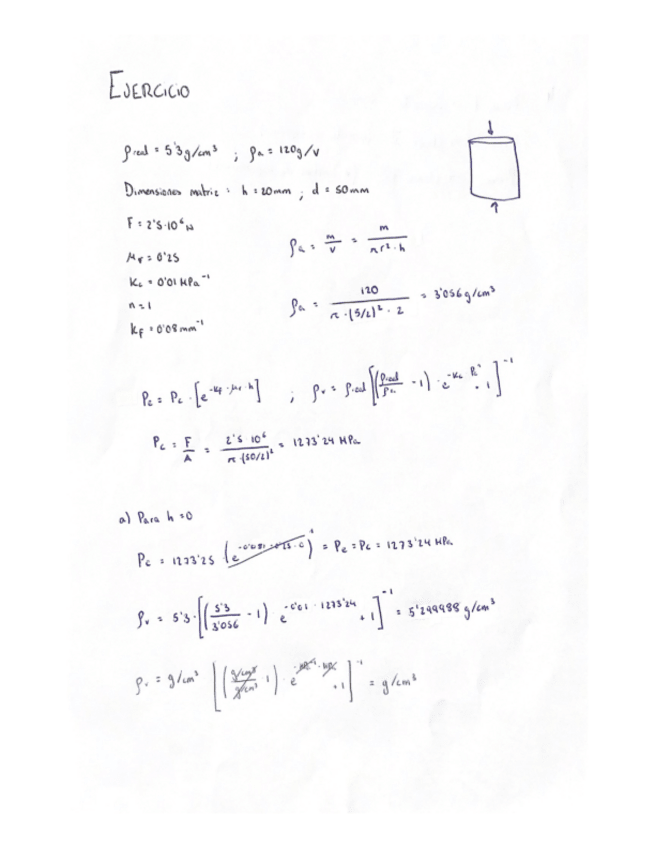 EJERCICIO
ρreal = 5'3g/cm³ ; ρa = 120g/v
Dimensiones matriz : h = 20mm ; d = 50mm
F = 2'5·10⁶ N
ρa = m/v = m/(π r² · h)
μr = 0'25
Kc = 0'01 MPa⁻¹
n = 1
ρa = 120/(π · (5/2)² · 2) = 3'056 g/cm³
kf = 0'08 mm⁻¹
Pe = Pc · [e^(-kf · μr · h)] ; ρv = ρreal [(ρreal/ρa - 1) · e^(-Kc · Peⁿ) + 1]⁻¹
Pc = F/A = 2'5 · 10⁶/(π · (50/2)²) = 1273'24 MPa
a) Para h = 0
Pe = 1273'25 · (e^(-0'08 · 0'25 · 0)) = Pe = Pc = 1273'24 MPa
ρv = 5'3 · [(5'3/3'056 - 1) e^(-0'01 · 1273'24) + 1]⁻¹ = 5'299988 g/cm³
ρv = g/cm³ [(g/cm³/g/cm³ - 1) · e^(-MPa⁻¹ · MPa) + 1]⁻¹ = g/cm³